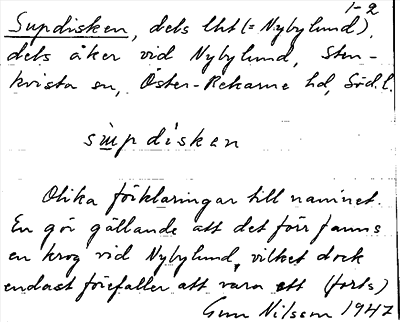 1-2
Supdisken, dels lht (= Nybylund),
dels åker vid Nybylund, Sten-
kvista sn, Öster-Rekarne hd, Söd.l.
sùpdisken
Olika förklaringar till namnet.
En gör gällande att det förr fanns
en krog vid Nybylund, vilket dock
endast förefaller att vara ett (forts)
Gun Nilsson 1947